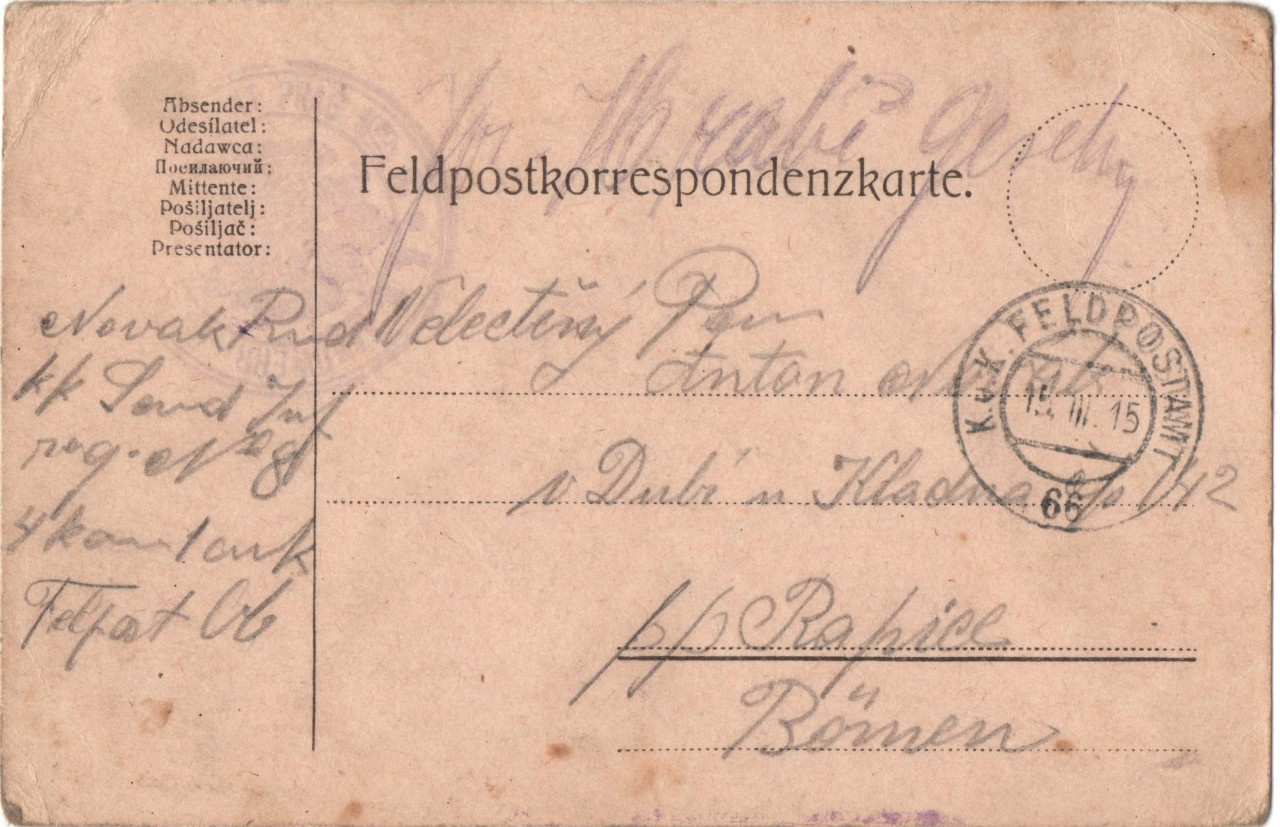 Absender:
Odesílatel:
Nadawca:
Посилаючий:
Mittente:
Pošiljatelj:
Pošiljač:
Presentator:
Feldpostkorrespondenzkarte.
Novak Rud
kk Land Inf
reg. № 8
4 kom
Felpost 66
Velectěný Pan
Anton Novak
v Dubí u Kladna čp 142
p/p Rapice
Bömen
K.u.K. FELDPOSTAMT
15. III. 15
a
66